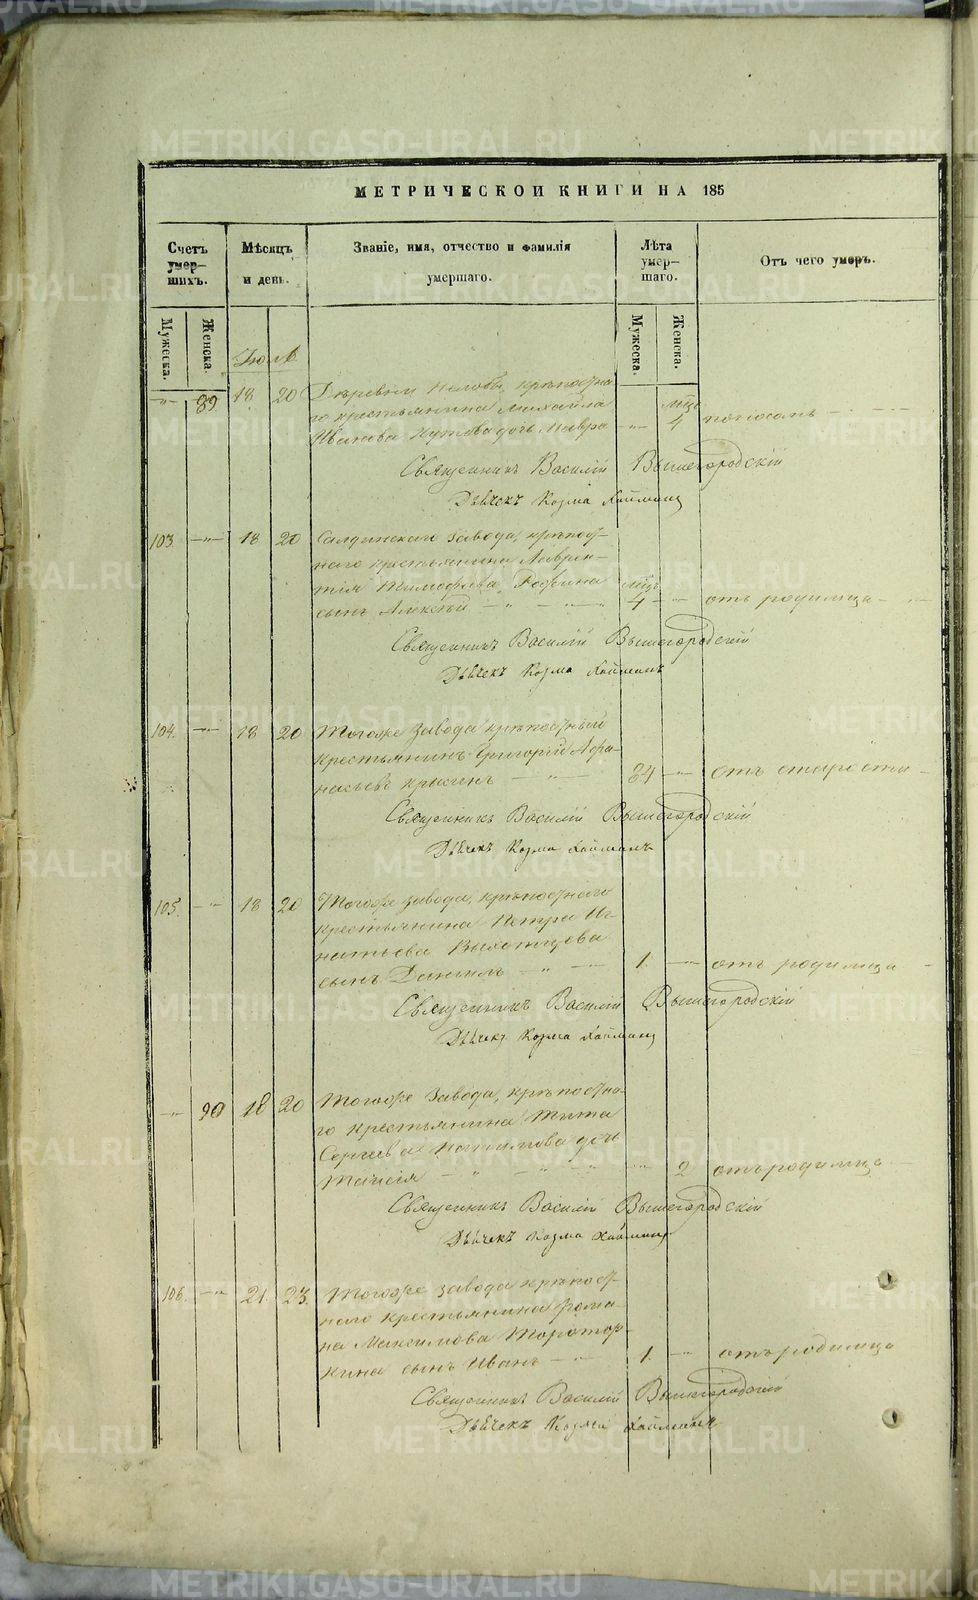 МЕТРИЧЕСКОЙ КНИГИ НА 185
Счетъ умер-шихъ.
Мѣсяцъ и день.
Званіе, имя, отчество и фамилія умершаго.
Лѣта умер-шаго.
Отъ чего умеръ.
Мужеска.
Женска.
Мужеска.
Женска.
Іюль
89 18 20 Деревни крѣпостна-
го крестьянина Михайла мцъ
Иванова дочь Мавра 4 поносомъ
Священникъ Василій Вышегородскій
Дьячекъ Козма
103. 18 20 Салдинскаго завода, крѣпост-
наго крестьянина Лаврен-
тія Тимофѣева мцъ
сынъ Алексѣй 4 отъ родимца
Священникъ Василій Вышегородскій
Дьячекъ Козма
104. 18 20 Тогоже завода крѣпостный
крестьянинъ Григорій Афа-
насьевъ 84 отъ старости
Священникъ Василій Вышегородскій
Дьячекъ Козма
105. 18 20 Тогоже завода, крѣпостнаго
крестьянина Петра Иг-
натьева
сынъ Даніилъ 1. отъ родимца
Священникъ Василій Вышегородскій
Дьячекъ Козма
90 18 20 Тогоже завода, крѣпостна-
го крестьянина Тита
Сергѣева дочь
Таисія 2 отъ родимца
Священникъ Василій Вышегородскій
Дьячекъ Козма
106. 21. 23. Тогоже завода крѣпост-
наго крестьянина Рома-
на Максимова
сынъ Иванъ 1. отъ родимца
Священникъ Василій Вышегородскій
Дьячекъ Козма
METRIKI.GASO-URAL.RU